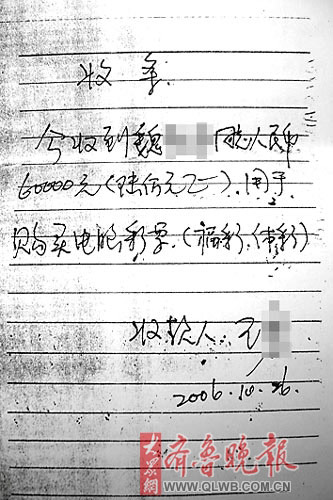 收条
今收到魏 同志人民币
60000元(陆万元正).用于
购买电脑彩票.(福彩.体彩)
收款人.王
2006.10.26.
大众网 齐鲁晚报
WWW.QLWB.COM.CN